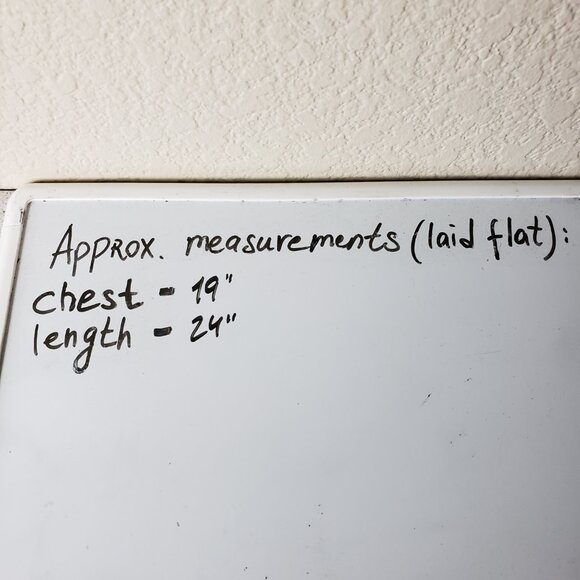 Approx. measurements (laid flat):
chest - 19"
length - 24"